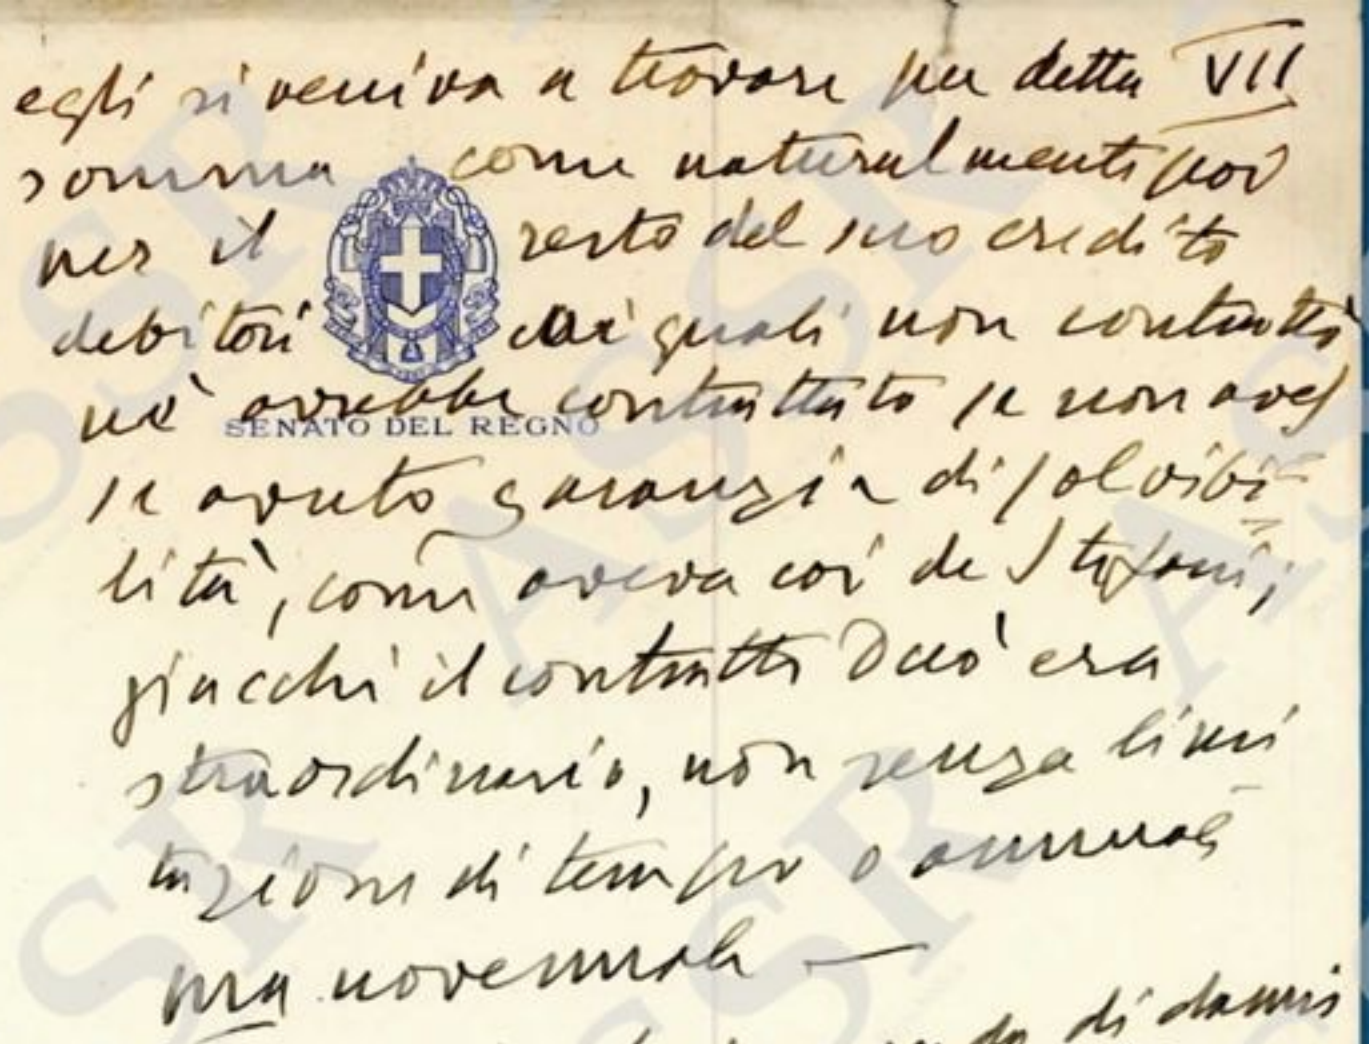 egli si veniva a trovare per detta VII
somma come naturalmente poi
per il resto del suo credito
debitori coi quali non contrattò
nè avrebbe contrattato se non aves
SENATO DEL REGNO
se avuto garanzia di solvibi-
lità, come aveva coi de Stefani;
giacchè il contratto Duò era
straordinario, non senza limi
tazione di tempo o annuale
ma novennale —
di danni